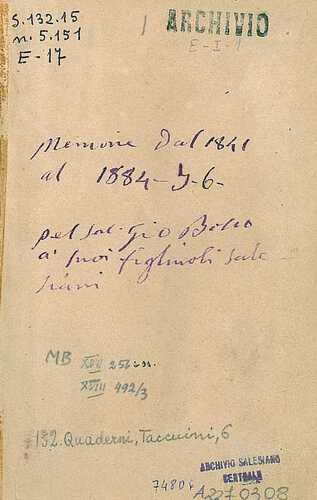 S.132.15
n. 5.151
E-17
ARCHIVIO
E-I-1
Memorie Dal 1841
al 1884-5-6-
pel Sac. Gio Bosco
a' suoi figliuoli sale
siani
MB XVII 256 in.
XVIII 492/3
132. Quaderni, Taccuini, 6
ARCHIVIO SALESIANO
CENTRALE
A2270308